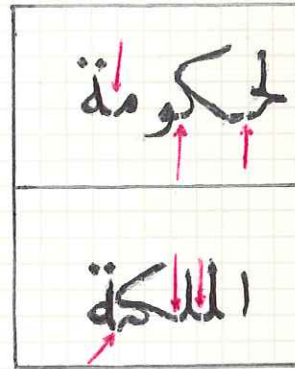 لحكومة
الملكة